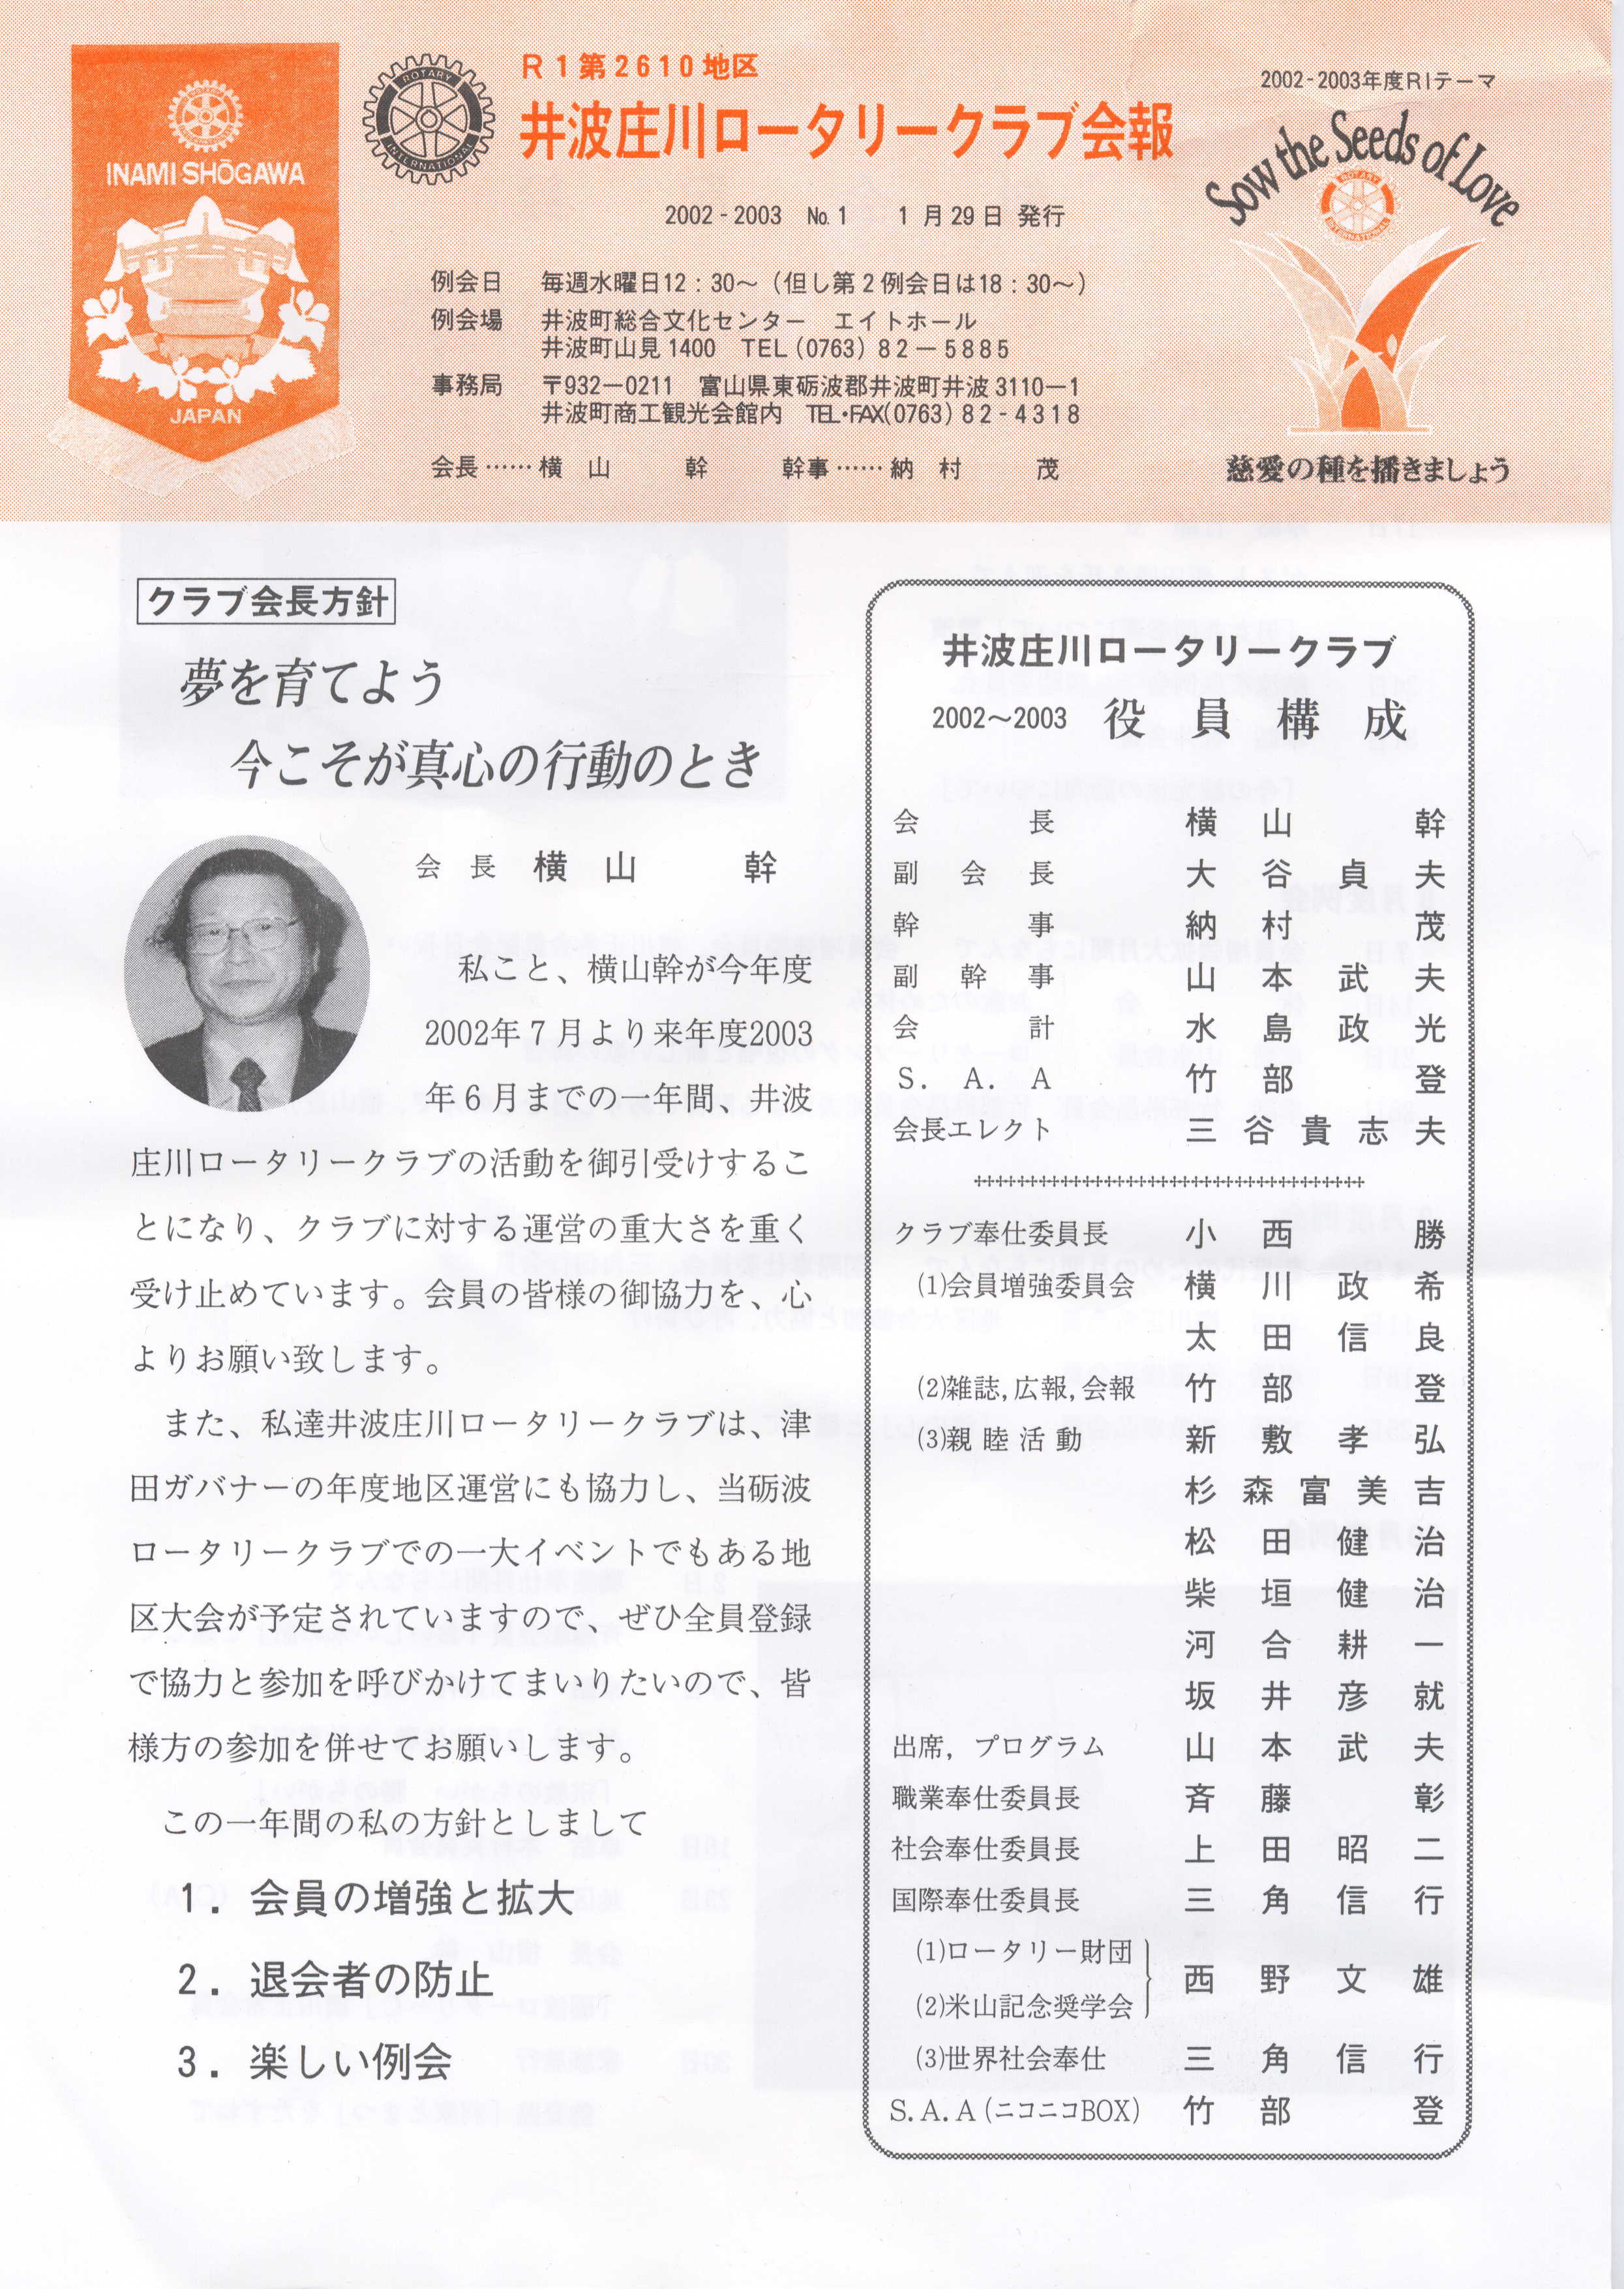 INAMI SHŌGAWA
JAPAN
ROTARY
INTERNATIONAL
R1第2610地区
井波庄川ロータリークラブ会報
2002-2003 No.1 1月29日 発行
例会日 毎週水曜日12:30～(但し第2例会日は18:30～)
例会場 井波町総合文化センター エイトホール
井波町山見1400 TEL(0763)82-5885
事務局 〒932-0211 富山県東砺波郡井波町井波3110-1
井波町商工観光会館内 TEL・FAX(0763)82-4318
会長……横山 幹 幹事……納村 茂
2002-2003年度RIテーマ
Sow the Seeds of Love
ROTARY
INTERNATIONAL
慈愛の種を播きましょう
クラブ会長方針
夢を育てよう
今こそが真心の行動のとき
会長 横山 幹
私こと、横山幹が今年度
2002年7月より来年度2003
年6月までの一年間、井波
庄川ロータリークラブの活動を御引受けするこ
とになり、クラブに対する運営の重大さを重く
受け止めています。会員の皆様の御協力を、心
よりお願い致します。
また、私達井波庄川ロータリークラブは、津
田ガバナーの年度地区運営にも協力し、当砺波
ロータリークラブでの一大イベントでもある地
区大会が予定されていますので、ぜひ全員登録
で協力と参加を呼びかけてまいりたいので、皆
様方の参加を併せてお願いします。
この一年間の私の方針としまして
1. 会員の増強と拡大
2. 退会者の防止
3. 楽しい例会
井波庄川ロータリークラブ
2002～2003 役員構成
会長 横山 幹
副会長 大谷貞夫
幹事 納村 茂
副幹事 山本武夫
会計 水島政光
S.A.A 竹部 登
会長エレクト 三谷貴志夫
クラブ奉仕委員長 小西 勝
(1)会員増強委員会 横川政希
太田信良
(2)雑誌,広報,会報 竹部 登
(3)親睦活動 新敷孝弘
杉森富美吉
松田健治
柴垣健治
河合耕一
坂井彦就
出席,プログラム 山本武夫
職業奉仕委員長 斉藤 彰
社会奉仕委員長 上田昭二
国際奉仕委員長 三角信行
(1)ロータリー財団
西野文雄
(2)米山記念奨学会
(3)世界社会奉仕 三角信行
S.A.A(ニコニコBOX) 竹部 登